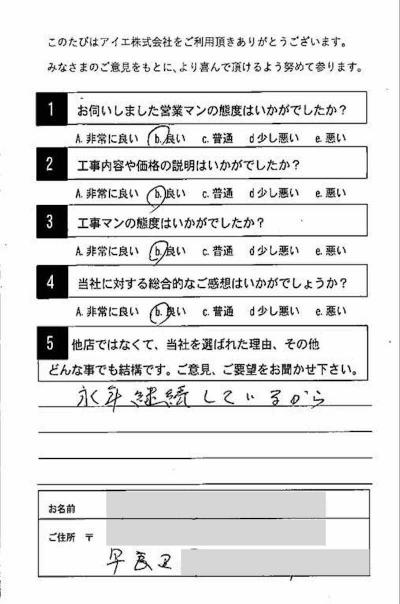 このたびはアイエ株式会社をご利用頂きありがとうございます。
みなさまのご意見をもとに、より喜んで頂けるよう努めて参ります。
1 お伺いしました営業マンの態度はいかがでしたか？
A. 非常に良い b. 良い c. 普通 d 少し悪い e. 悪い
2 工事内容や価格の説明はいかがでしたか？
A. 非常に良い b. 良い c. 普通 d 少し悪い e. 悪い
3 工事マンの態度はいかがでしたか？
A. 非常に良い b. 良い c. 普通 d 少し悪い e. 悪い
4 当社に対する総合的なご感想はいかがでしょうか？
A. 非常に良い b. 良い c. 普通 d 少し悪い e. 悪い
5 他店ではなくて、当社を選ばれた理由、その他
どんな事でも結構です。ご意見、ご要望をお聞かせ下さい。
永年継続しているから
お名前
ご住所 〒
早良区